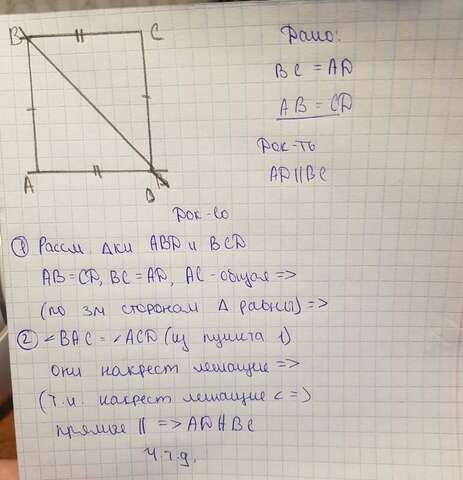 B C
A D
Дано:
BC = AD
AB = CD
Док-ть
AD || BC
Док-во
① Рассм Δки ABD и BCD
AB = CD, BC = AD, AC - общая =>
(по 3м сторонам Δ равны) =>
② ∠BAC = ∠ACD (из пункта 1)
они накрест лежащие =>
(т.и. накрест лежащие ∠ =)
прямые || => AD || BC
ч.т.д.